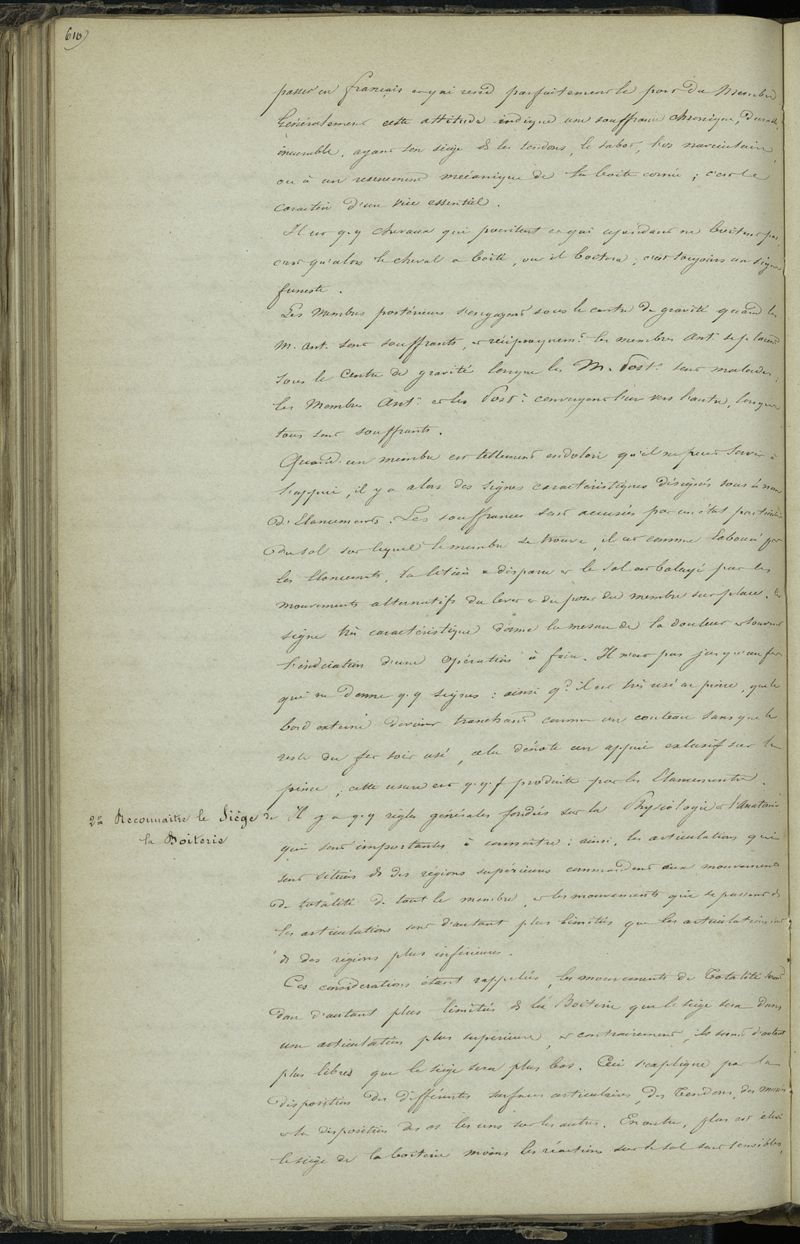 610)
passer en français ce qui rend parfaitement le poser du Membre
Généralement cette attitude indique une souffrance chronique,
incurable, ayant son siège ds les tendons, le sabot, l'os naviculaire
ou à un resserrement mécanique de la boîte cornée ; c'est le
caractère d'un vice essentiel.
Il est q.q chevaux qui pointent et qui cependant ne boitent pas
c'est qu'alors le cheval a boité, ou il boitera ; c'est toujours un signe
funeste.
Les Membres postérieurs s'engagent sous le centre de gravité quand les
M. Ant. sont souffrants, et réciproquemt les membres Antrs se placent
sous le Centre de gravité lorsque les M. Postrs sont malades ;
les Membres Antrs et les Postrs convergent l'un vers l'autre, lorsque
tous sont souffrants.
Quand un membre est tellement endolori qu'il ne peut servir à
l'appui, il y a alors des signes caractéristiques désignés sous le nom
d'Elancements. Les souffrances sont accusées par un état particulier
du sol sur lequel le membre se trouve, il est comme labouré par
les Elancements, la litière a disparu et le sol est balayé par les
mouvements alternatifs du lever et du poser du membre sur place. Ce
signe très caractéristique donne la mesure de la douleur et souvent
l'indication d'une opération à faire. Il n'est pas jusqu'au fer
qui ne donne q.q signes : ainsi qd il est très usé en pince, que le
bord externe devient tranchant comme un couteau sans que le
reste du fer soit usé, cela dénote un appui exclusif sur la
pince ; cette usure est q.q.f produite par les Elancements.
2° Reconnaître le Siège de
la Boiterie
Il y a q.q règles générales fondées sur la Physiologie et l'Anatomie
qui sont importantes à connaître : ainsi, les articulations qui
sont situées ds des régions supérieures commandent aux mouvements
de totalité de tout le membre, et les mouvements qui se passent ds
les articulations sont d'autant plus limités que les articulations sont
ds des régions plus inférieures.
Ces considérations étant rappelées, les mouvements de Totalité seront
donc d'autant plus limités ds la Boiterie que le siège sera dans
une articulation plus supérieure, et contrairement, ils seront d'autant
plus libres que le siège sera plus bas. Ceci s'explique par la
disposition des différentes surfaces articulaires, des tendons, des muscles
et la disposition des os les uns sur les autres. En outre, plus est élevé
le siège de la boiterie moins les réactions sur le sol sont sensibles,